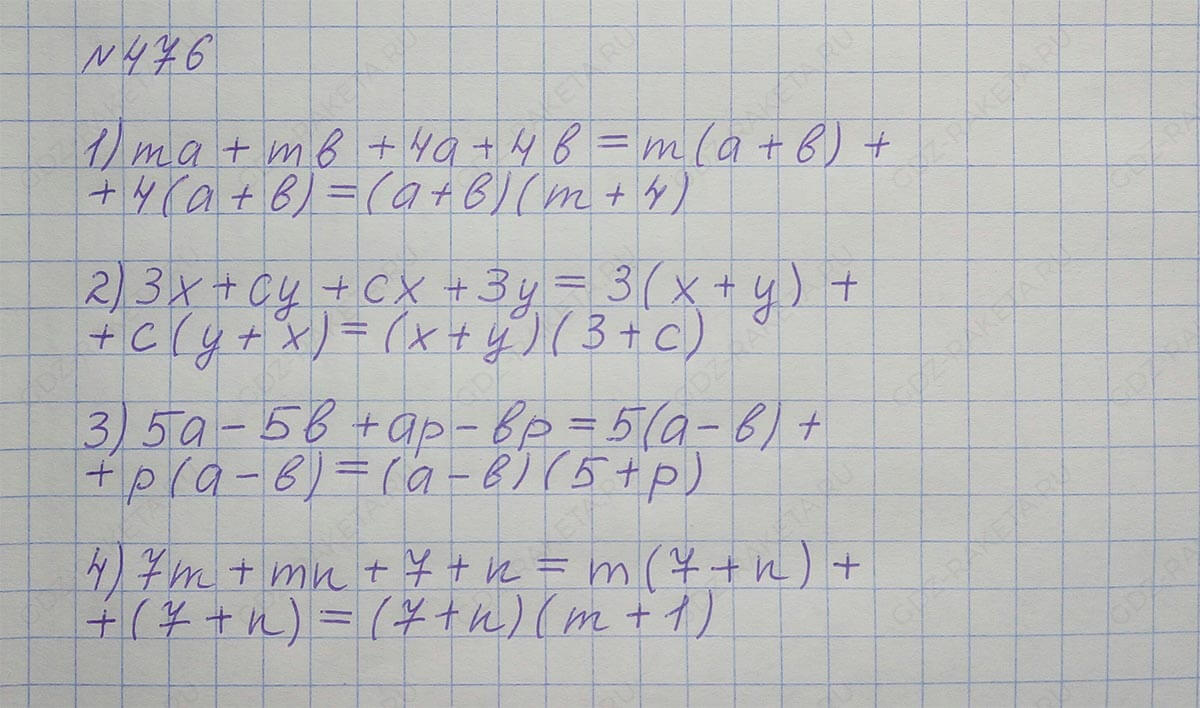 №476
1) ma + mb + 4a + 4b = m(a + b) +
+ 4(a + b) = (a + b)(m + 4)
2) 3x + cy + cx + 3y = 3(x + y) +
+ c(y + x) = (x + y)(3 + c)
3) 5a - 5b + ap - bp = 5(a - b) +
+ p(a - b) = (a - b)(5 + p)
4) 7m + mn + 7 + n = m(7 + n) +
+ (7 + n) = (7 + n)(m + 1)
GDZ-RAKETA.RU